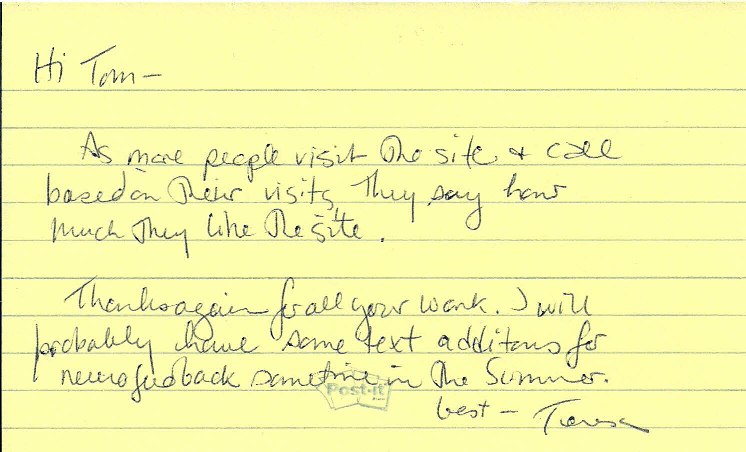 Hi Tom –
As more people visit the site & call
based on their visits, they say how
much they like the site.
Thanks again for all your work. I will
probably have some text additons for
neurofeedback sometime in the Summer.
Post-it
best – Teresa